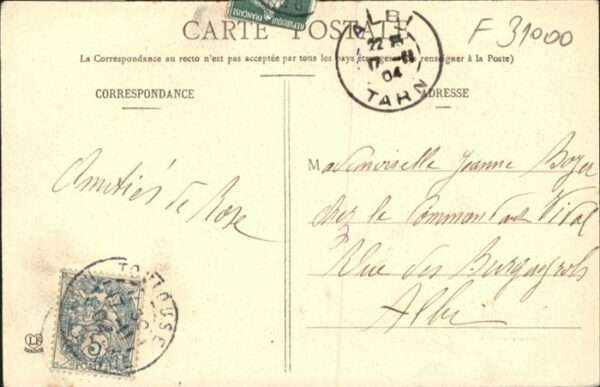 CARTE POSTALE
F 31000
(La Correspondance au recto n'est pas acceptée par tous les pays étrangers renseigner à la Poste)
ALBI
17 -11
04
TARN
CORRESPONDANCE
ADRESSE
Amitiés de Rose
Mademoiselle Jeanne Boyer
chez le Commandant Vidal
Rue des
Albi
TOULOUSE
5